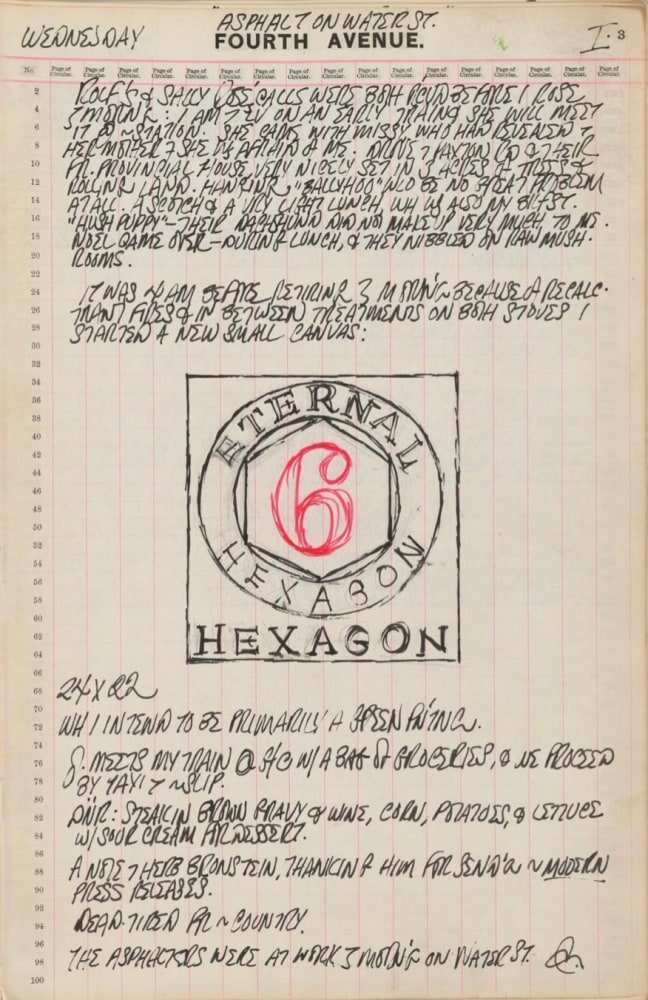 ASPHALT ON WATER ST.
WEDNESDAY FOURTH AVENUE. I. 3
No. Page of Circular. Page of Circular. Page of Circular. Page of Circular. Page of Circular. Page of Circular. Page of Circular. Page of Circular. Page of Circular. Page of Circular. Page of Circular. Page of Circular. Page of Circular. Page of Circular. Page of Circular. Page of Circular.
2 & SALLY CALLS WERE BOTH BEFORE I ROSE
4 MORN'G: I AM ON AN EARLY TRAIN & SHE WILL MEET
6 IT @ ~ STATION. SHE CAME WITH MISSY WHO HAD REVEALED 7
8 HER MOTHER 7 SHE WS AFRAID OF ME. DRIVE 7 & THEIR
10 FR. PROVINCIAL HOUSE VERY NICELY SET IN 5 ACRES OF TREES &
12 ROLLING LAND. HANGING "BALLYHOO" WLD BE NO GREAT PROBLEM
14 AT ALL. A SCOTCH & A VRY LIGHT LUNCH, WH WS ALSO MY BKFST.
16 "HUSH PUPPY" – THEIR DACHSHUND DID NOT MAKE UP VERY MUCH TO ME.
18 NOEL CAME OVER – DURING LUNCH, & THEY NIBBLED ON RAW MUSH-
20 ROOMS.
22
24 IT WAS 4 AM BEFORE RETIRING 3 MORN'G BECAUSE OF RECALC-
26 TRANT FIRES & IN BETWEEN TREATMENTS ON BOTH STOVES I
28 STARTED A NEW SMALL CANVAS:
30
32
34
36
38
40
42
44
46
48
50
52
54
56
58
60
62
64
66
ETERNAL
6
HEXAGON
HEXAGON
68 24 X 22
70
72 WH I INTEND TO BE PRIMARILY A GREEN PNTNG.
74
76 MEETS MY TRAIN @ W/ A BAG OF GROCERIES, & WE PROCEED
78 BY TAXI 7 ~ SLIP.
80
82 DNR: STEAK IN BROWN GRAVY & WINE, CORN, POTATOES, & LETTUCE
84 W/ SOUR CREAM FOR DESSERT.
86
88 A NOTE 7 HERB BRONSTEIN, THANKING HIM FOR SEND'G ~ MODERN
90 PRESS RELEASES.
92
94 DEAD-TIRED FR ~ COUNTRY.
96
98 THE ASPHALTERS WERE AT WORK 3 MORN'G ON WATER ST.
100